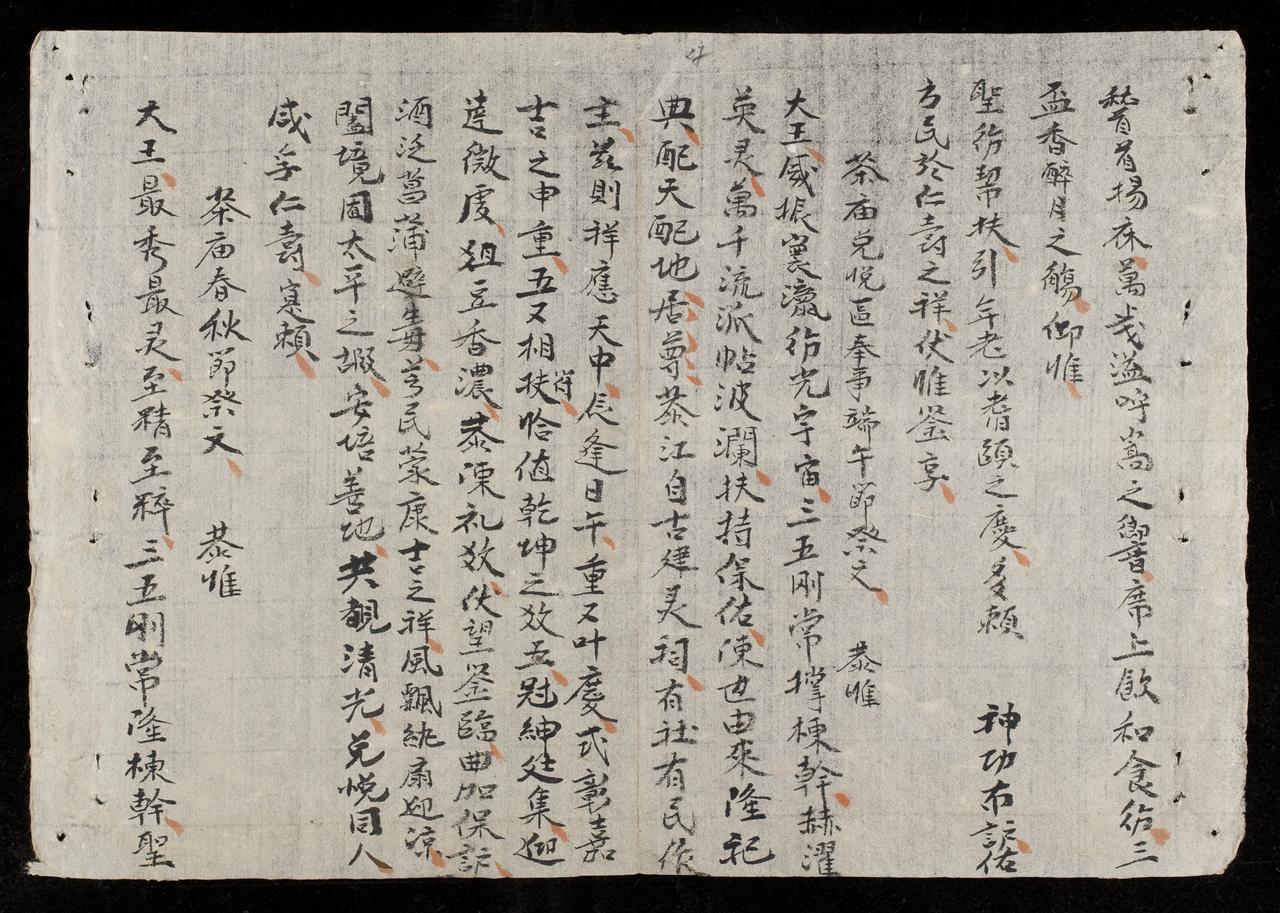 嵇首首揚庥萬歲溢呼嵩之響席上飲和食德三
盃香醉月之觴仰惟
聖德幫扶引年老以耆頤之慶多頼　神功布護佑
方民於仁壽之祥伏惟鉴享
祭庙兌悅區奉事端午節祭文　恭惟
大王威振寰瀛德光宇宙三五刚常撑棟幹赫濯
英灵萬千流派帖波瀾扶持保佑陳世由來隆祀
典配天配地居尊恭江自古建灵祠有社有民作
主兹則祥應天中辰逢日午重又叶慶式彰嘉
吉之申重五又相扶符恰值乾坤之效五冠紳処集迎
達微虔俎豆香濃恭陳礼效伏望鉴臨曲加保護
酒泛菖蒲避毒芳民蒙康吉之祥風飄紈扇迎凉
闔境囿太平之嘏安培善地共覩清光兌悅同人
咸孚仁壽寔頼
祭庙春秋節祭文　恭惟
大王最秀最灵至精至粹三五刚常隆棟幹聖